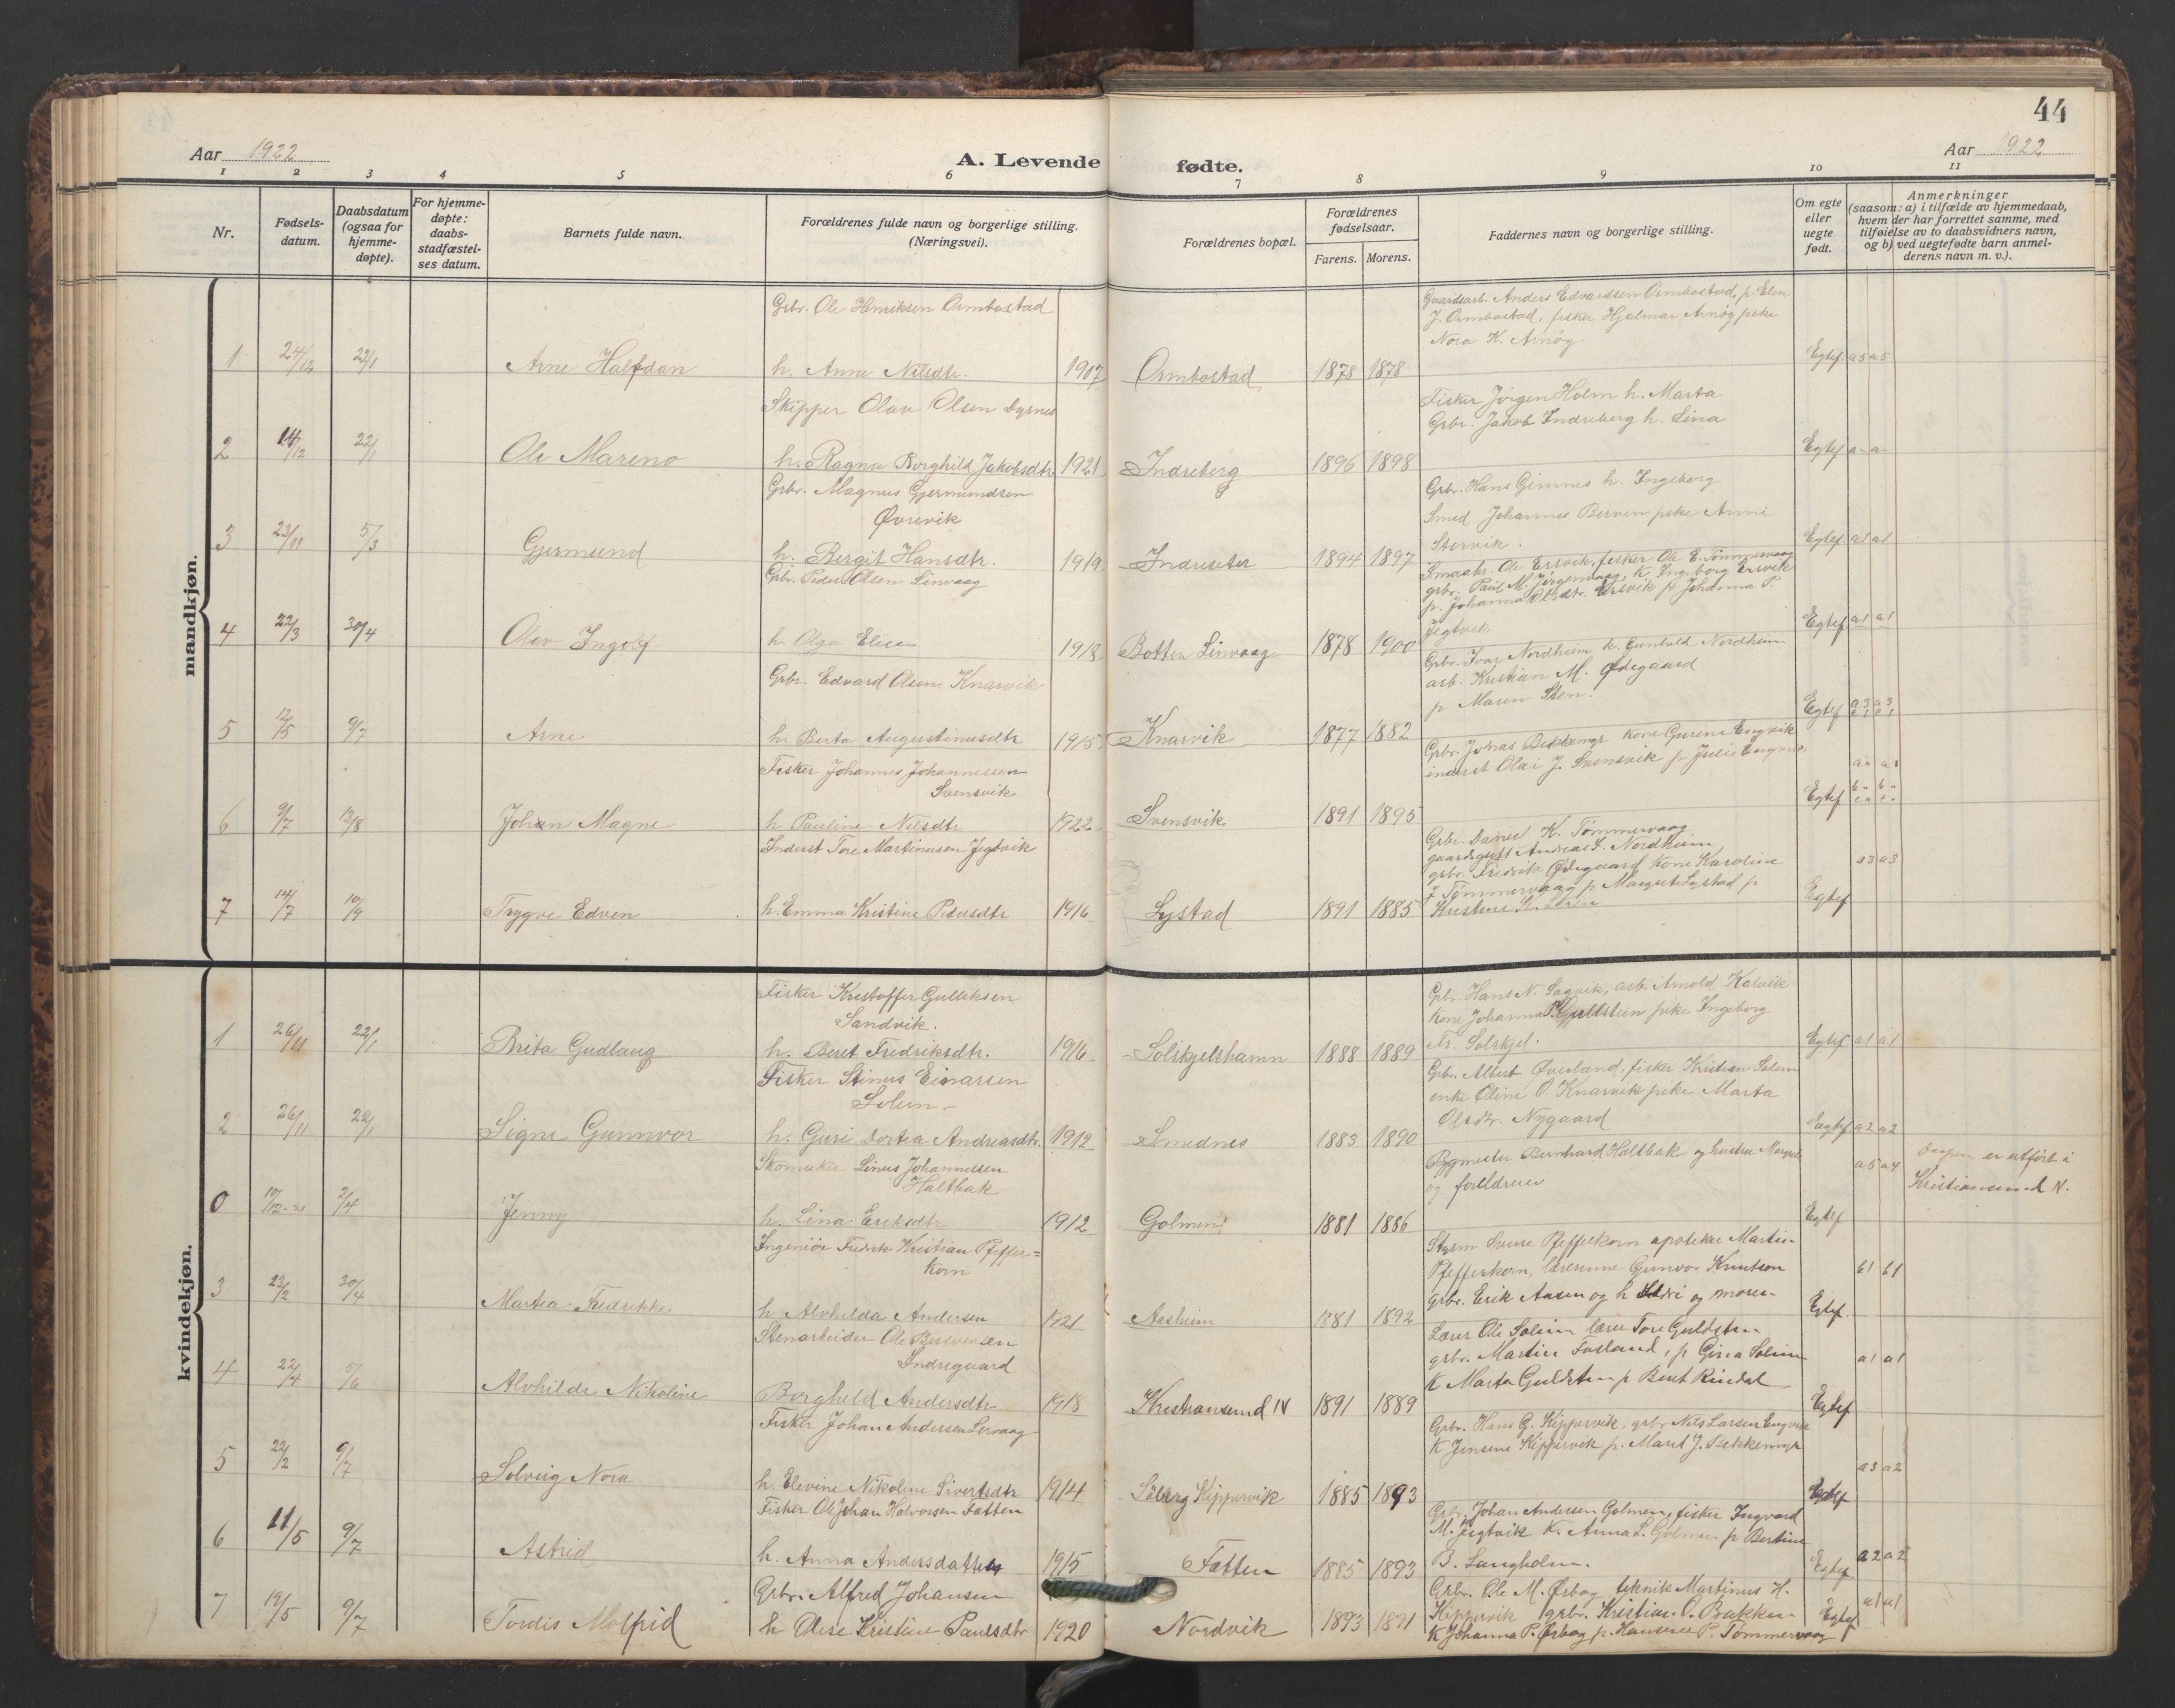 44
Aar 1922
A. Levende fødte.
Aar 1922
1 2 3 4 5 6 7 8 9 10 11
Nr.
Fødsels-
datum.
Daabsdatum
(ogsaa for
hjemme-
døpte).
For hjemme-
døpte:
daabs-
stadfæstel-
ses datum.
Barnets fulde navn.
Forældrenes fulde navn og borgerlige stilling.
(Næringsvei).
Forældrenes bopæl.
Forældrenes
fødselsaar.
Farens. Morens.
Faddernes navn og borgerlige stilling.
Om egte
eller
uegte
født.
Anmerkninger
(saasom: a) i tilfælde av hjemmedaab,
hvem der har forrettet samme, med
tilføielse av to daabsvidners navn,
og b) ved uegtefødte barn anmel-
derens navn m. v.).
mandkjøn.
Grbr. Ole Henriksen Ormbostad
Gaardsarb. Anders Edvardsen Ormbostad, p. Elen
J. Ormbostad, fisker Hjalmar Arnøy pike
Nora K. Arnøy.
1 24/12 22/1 Arne Halfdan h. Anne Nilsdtr. 1907 Ormbostad 1878 1878 Egtef. a5 a5
Skipper Olav Olsen Dyrnes
Fisker Jörgen Holm h. Marta
Grbr. Jakob Indreberg h. Lina
2 14/12 22/1 Ole Mareno h. Ragna Borghild Jakobsdtr. 1921 Indreberg 1896 1898 Egtef a- a-
Grbr. Magnus Gjermundsen
Øvrevik
Grbr. Hans Gimnes h. Ingeborg
Smed Johannes Berven pike Anne
Stervik.
3 23/11 5/3 Gjermund h. Bergit Hansdtr. 1919 Indreseter 1894 1897 Egtef a1 a1
Grbr. Peder Olsen Linvaag
Smaabr. Ole Ersvik, fisker Ole E. Tømmervaag
grbr. Paul M. Jørgenvaag, k. Ingeborg Ersvik
p. Johanna Olsdtr. Ersvik p Johanna P.
Jegtvik
4 22/3 30/4 Olav Ingolf h. Olga Elise 1918 Botten Linvaag 1878 1900 Egtef a1 a1
Grbr. Edvard Olsen Knarvik
Grbr. Ivar Nordheim k. Gunhild Nordheim
arb. Kristian M. Ødegaard
p Maren Sten.
5 12/5 9/7 Arne h. Berta Augustinusdtr 1915 Knarvik 1877 1882 Egtef a3 a3
Fisker Johannes Johannessen
Svensvik
Grbr. Jonas Bekkemyr kone Gurine Engvik
inderst Olai J. Svensvik p Julie Engvik
6 9/7 13/8 Johan Magne h Pauline Nilsdtr 1922 Svensvik 1891 1895 Egtef
Inderst Tore Martinusen Jegtvik
Grbr. Daniel K. Tömmervaag
gaardsgutt Andreas I. Nordheim
grbr. Fredrik Ødegaard kone Karoline
J Tømmervaag p Margrete Lystad p
a3 a3
7 14/7 10/9 Trygve Edven h. Emma Kristine Pedersdtr 1916 Lystad 1891 1885 Egtef
kvindekjøn.
Fisker Kristoffer Gulliksen
Sandvik.
Grbr. Hans N. Sagvik, arb. Arnold Kalvik
kone Johanna P. Gjullstein pike Ingeborg
Tr. Solskjel.
1 26/11 22/1 Brita Gudlaug h. Beret Fredriksdtr. 1916 Solskjelshamn 1888 1889 Egtef a1 a1
Fisker Stinus Einarsen
Solem
Grbr. Albert Øverland, fisker Kristian Solem
enke Oline O. Knarvik pike Marta
Olsdtr. Nygaard
2 26/11 22/1 Signe Gunnvor h. Guri Dortea Andreasdtr. 1912 Smednes 1883 1890 Egtef. a2 a2
Skomaker Linus Johannessen
Haltbak
Bygmester Bernhard Haltbak og hustru Margret
og foreldrene
a5 a4
Daapen er utfört i
Kristiansund N.
0 10/12-21 2/4 Jenny h. Lina Eriksdtr 1912 Golmen 1881 1886 Egtef
Ingeniör Fredrik Kristian Pfeffer=
korn
Styrm Sverre Pfefferkorn apoteker Martin
Pfefferkorn, lærerinne Gunvor Knutson
grbr. Erik Aasen og h Seldri og moren
61 61
3 23/2 30/4 Martea Fredrikke h Alvhilda Andersen 1921 Aasheim 1881 1892 Egtef.
Stenarbeider Ole Bersvensen
Indregaard
Lærer Ole Solem lærer Tore Guldsten
grbr. Martin Fosland, p Gina Solem
K Marta Guldsten p Beret Rindal
a1 a1
4 22/4 5/6 Alvhilde Nikoline Borghild Andersdtr 1918 Kristiansund N 1891 1889 Egtef
Fisker Johan Andersen Lervaag
Grbr. Hans G. Kippervik, grbr Nils Larsen Engvik
K Jensine Kippervik p. Maret J. Bekkemyr
a3 a2
5 22/2 9/7 Solveig Nora h. Elevine Nikoline Sivertsdtr 1914 Solberg Kippervik 1885 1893 Egtef
Fisker Ole Johan Halvorsen Fætten
Grbr. Johan Andersen Golmen, fisker Ingvard
M. Jegtvik K. Anna L. Golmen p Bertine
B. Langholm.
6 11/5 9/7 Astrid h. Anna Andersdatter 1915 Fætten 1885 1893 Egtef a2 a2
Grbr. Alfred Johansen
Grbr. Ole M. Ørbog teknik Martinus H.
Kippervik grbr. Kristian O. Bakken
K Johanna P. Ørbog p. Hansine P. Tømmervaag
7 19/5 9/7 Tordis Molfrid h Olise Kristine Paulsdtr 1920 Nordvik 1893 1891 Egtef a1 a1